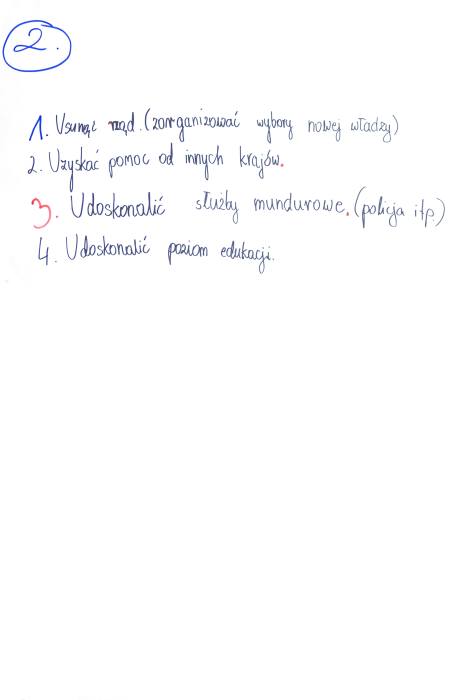 2.
1. Usunąć rząd. (zorganizować wybory nowej władzy)
2. Uzyskać pomoc od innych krajów.
3. Udoskonalić służby mundurowe. (policja itp)
4. Udoskonalić poziom edukacji.